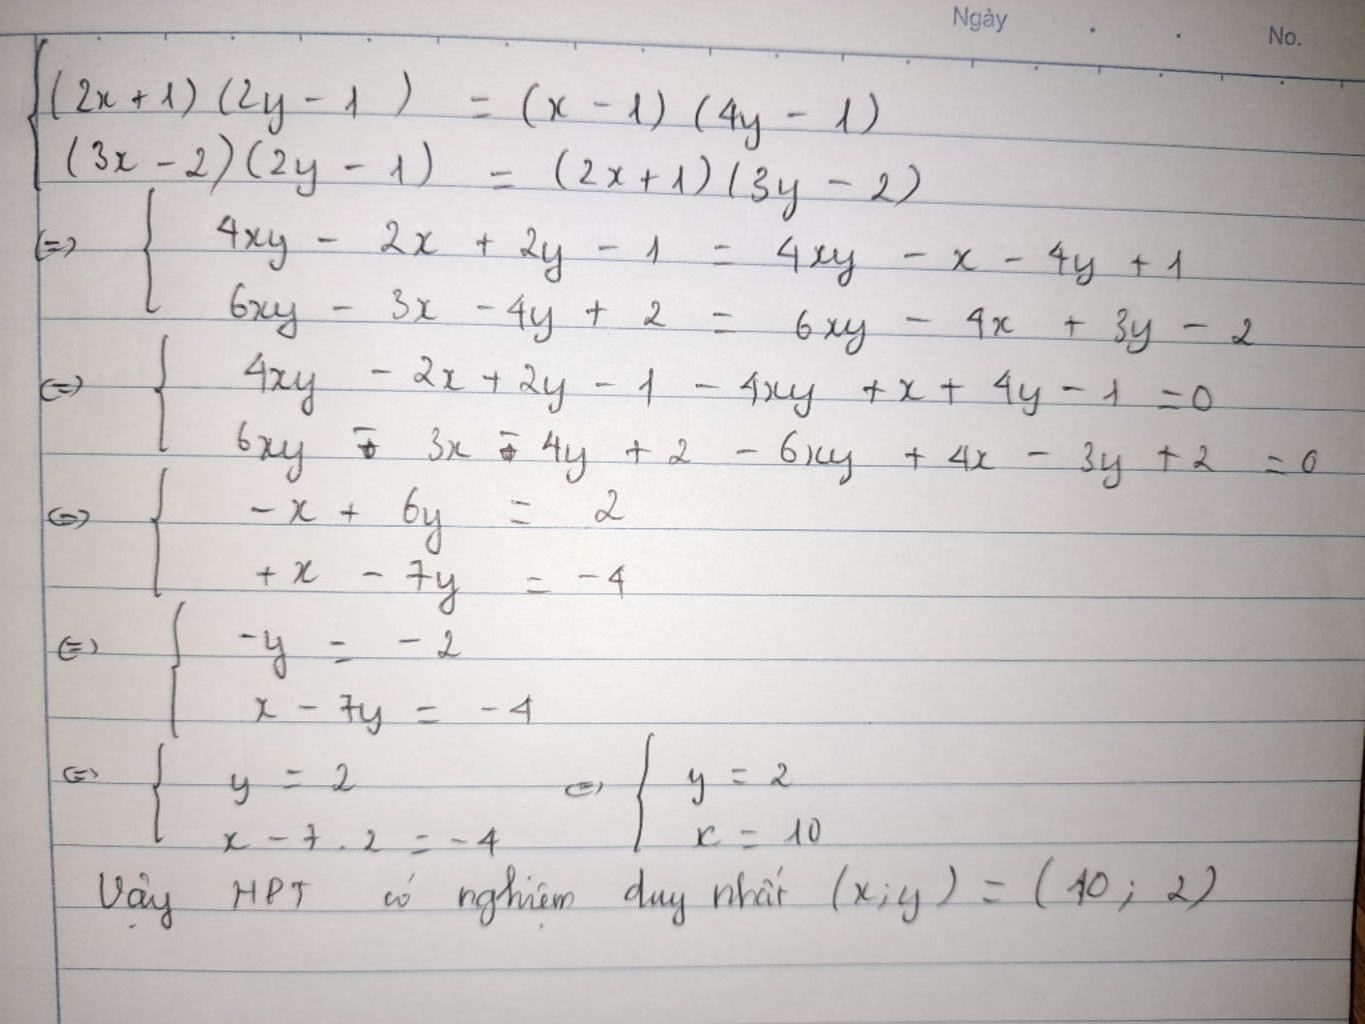 Ngày . . No.
(2x + 1) (2y - 1) = (x - 1) (4y - 1)
(3x - 2) (2y - 1) = (2x + 1) (3y - 2)
(=) { 4xy - 2x + 2y - 1 = 4xy - x - 4y + 1
6xy - 3x - 4y + 2 = 6xy - 4x + 3y - 2
(=) { 4xy - 2x + 2y - 1 - 4xy + x + 4y - 1 = 0
6xy - 3x - 4y + 2 - 6xy + 4x - 3y + 2 = 0
(=) { -x + 6y = 2
+x - 7y = -4
(=) { -y = -2
x - 7y = -4
(=) { y = 2 (=) { y = 2
x - 7 . 2 = -4 x = 10
Vậy HPT có nghiệm duy nhất (x; y) = (10; 2)